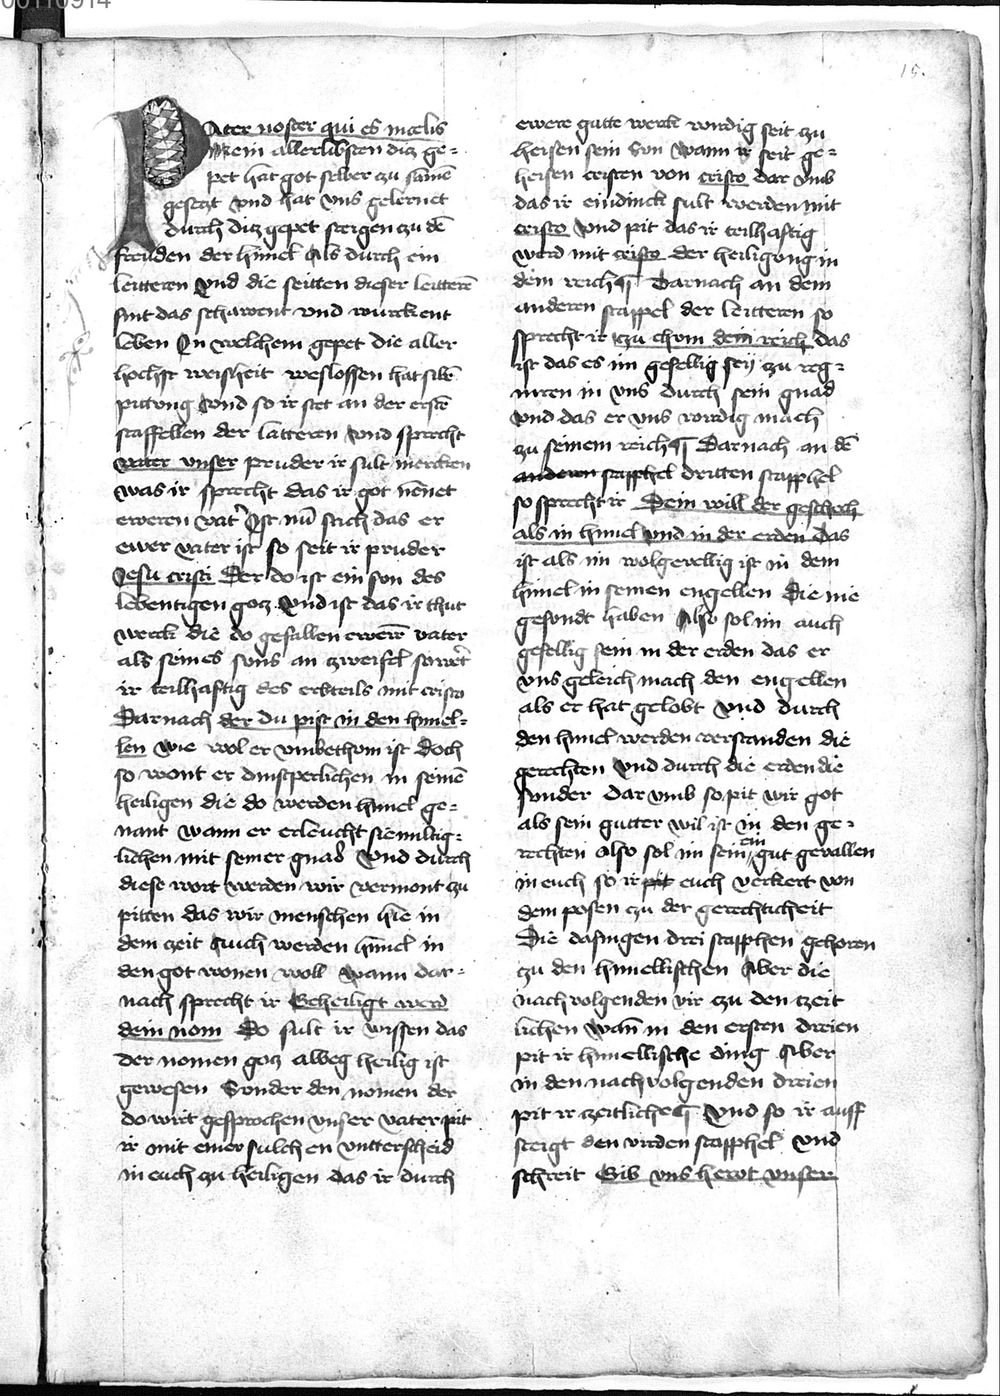 00110914
15.
Pater noster qui es in celis
Mein allerlibsten diz ge=
pet hat got selber zu samē
gesetzt vnd hat vns gelernet
durch diz gepet steigen zu dē
freuden der himel Als durch ein
leitteren Vnd die seitten dieser leitterē
sint das schawent vnd wurckent
leben In welchem gepet die aller
hochst weisheit weslossen hat sibē
pittung Vnd so ir stet an der erstē
staffellen der latteren Vnd sprecht
vater vnser pruder ir sult mercken
was ir sprecht das ir got nēnet
eweren vat̄ Ist nū sach das er
ewer vater ist so seit ir pruder
Jesu cristi Der do ist ein sun des
lebentigen gotz Vnd ist das ir thut
werck die do gefallen ewerē vater
als seines suns an zweifel so wert̄
ir teilhaftig des erbteils mit cristo
Darnach der du pist in den himel=
len wie wol er vmbethom ist Doch
so wont er sunsperlichen in seinē
heiligen die do werden himel ge=
nant wann er erleucht sie miltig=
lichen mit seiner gnad Vnd durch
diese wort werden wir vermont zu
pitten das wir menschen hie in
dem zeit Auch werden himel in
den got wonen woll Wann dar=
nach sprecht ir Geheiligt werd
dein nom Do sult ir wissen das
der nomen gotz alweg heilig ist
gewesen Sonder den nomen der
do wirt gesprochen vnser vater pit
ir mit einer sulchen vntterscheid
in euch zu heiligen das ir durch
ewere gutte werck wirdig seit zu
heisen sein sun Wann ir seit ge=
heisen cristen von cristo dar vmb
das ir eindinck sult werden mit
cristo Vnd pit das ir teilhaftig
werd mit cristo der heiligung in
dem reich ¶ Darnach an dem
anderen stappel der leitteren so
sprecht ir zu chom dein reich das
ist das es im gefellig sey zu reg=
niren in vns durch sein gnad
vnd das er vns wirdig mach
zu seinem reich ¶ Darnach an dē
anderen stapphel dritten stapphel
so sprecht ir Dein will der geschech
als in himel Vnd in der erden Das
ist als im wolgevellig ist in dem
himel in seinen engellen Die nie
gesundt haben Also sol im auch
gefellig sein in der erden das er
vns geleich mach den engellen
als er hat gelobt Vnd durch
den himel werden verstanden die
gerechten Vnd durch die erden die
sunder Dar vmb so pit wir got
als sein gutter wil ist in den ge=
rechten Also sol im sein ein gut gevallen
in euch so ir pit euch verkert von
dem posen zu der gerechticheit
Die dasingen drei stapphen gehoren
zu den himellischen Aber die
nach volgenden vir zu den tzeit
lichen Wañ in den ersten dreien
pit ir himellische ding Aber
in den nachvolgenden dreien
pit ir tzeitliche ¶ Vnd so ir auff
steigt den virden stapphel Vnd
schreit Gib vns hewt vnser